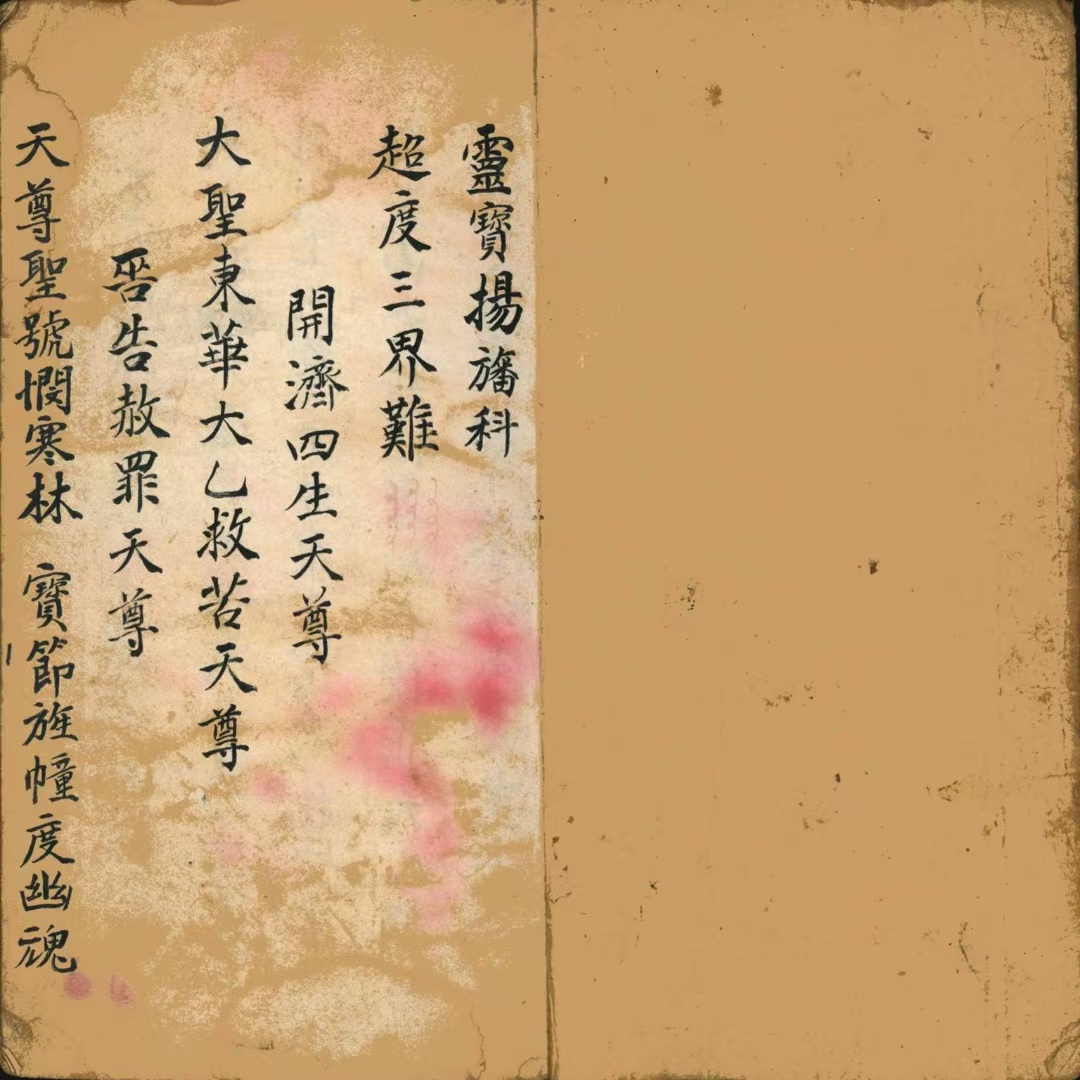 靈寶揚旛科
超度三界難
開濟四生天尊
大聖東華大乙救苦天尊
告赦罪天尊
天尊聖號憫寒林 寶節旌幢度幽魂